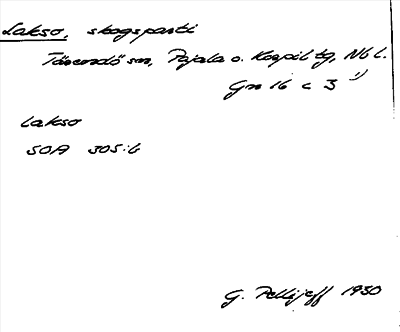 Lakso, skogsparti
Tärendö sn, Pajala o. Korpil tg, Nb l.
Gn 16 c 3 1)
Lakso
SOA 305:6
G. Pellijeff 1930